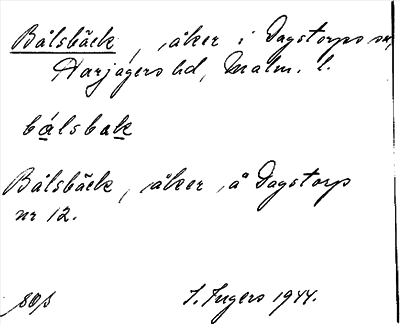 Bålsbäck, åker i Dagstorps sn,
Harjagers hd, Malm. l.
bálsbak
Bålsbäck, åker, å Dagstorp
nr 12.
I. Ingers 1944.